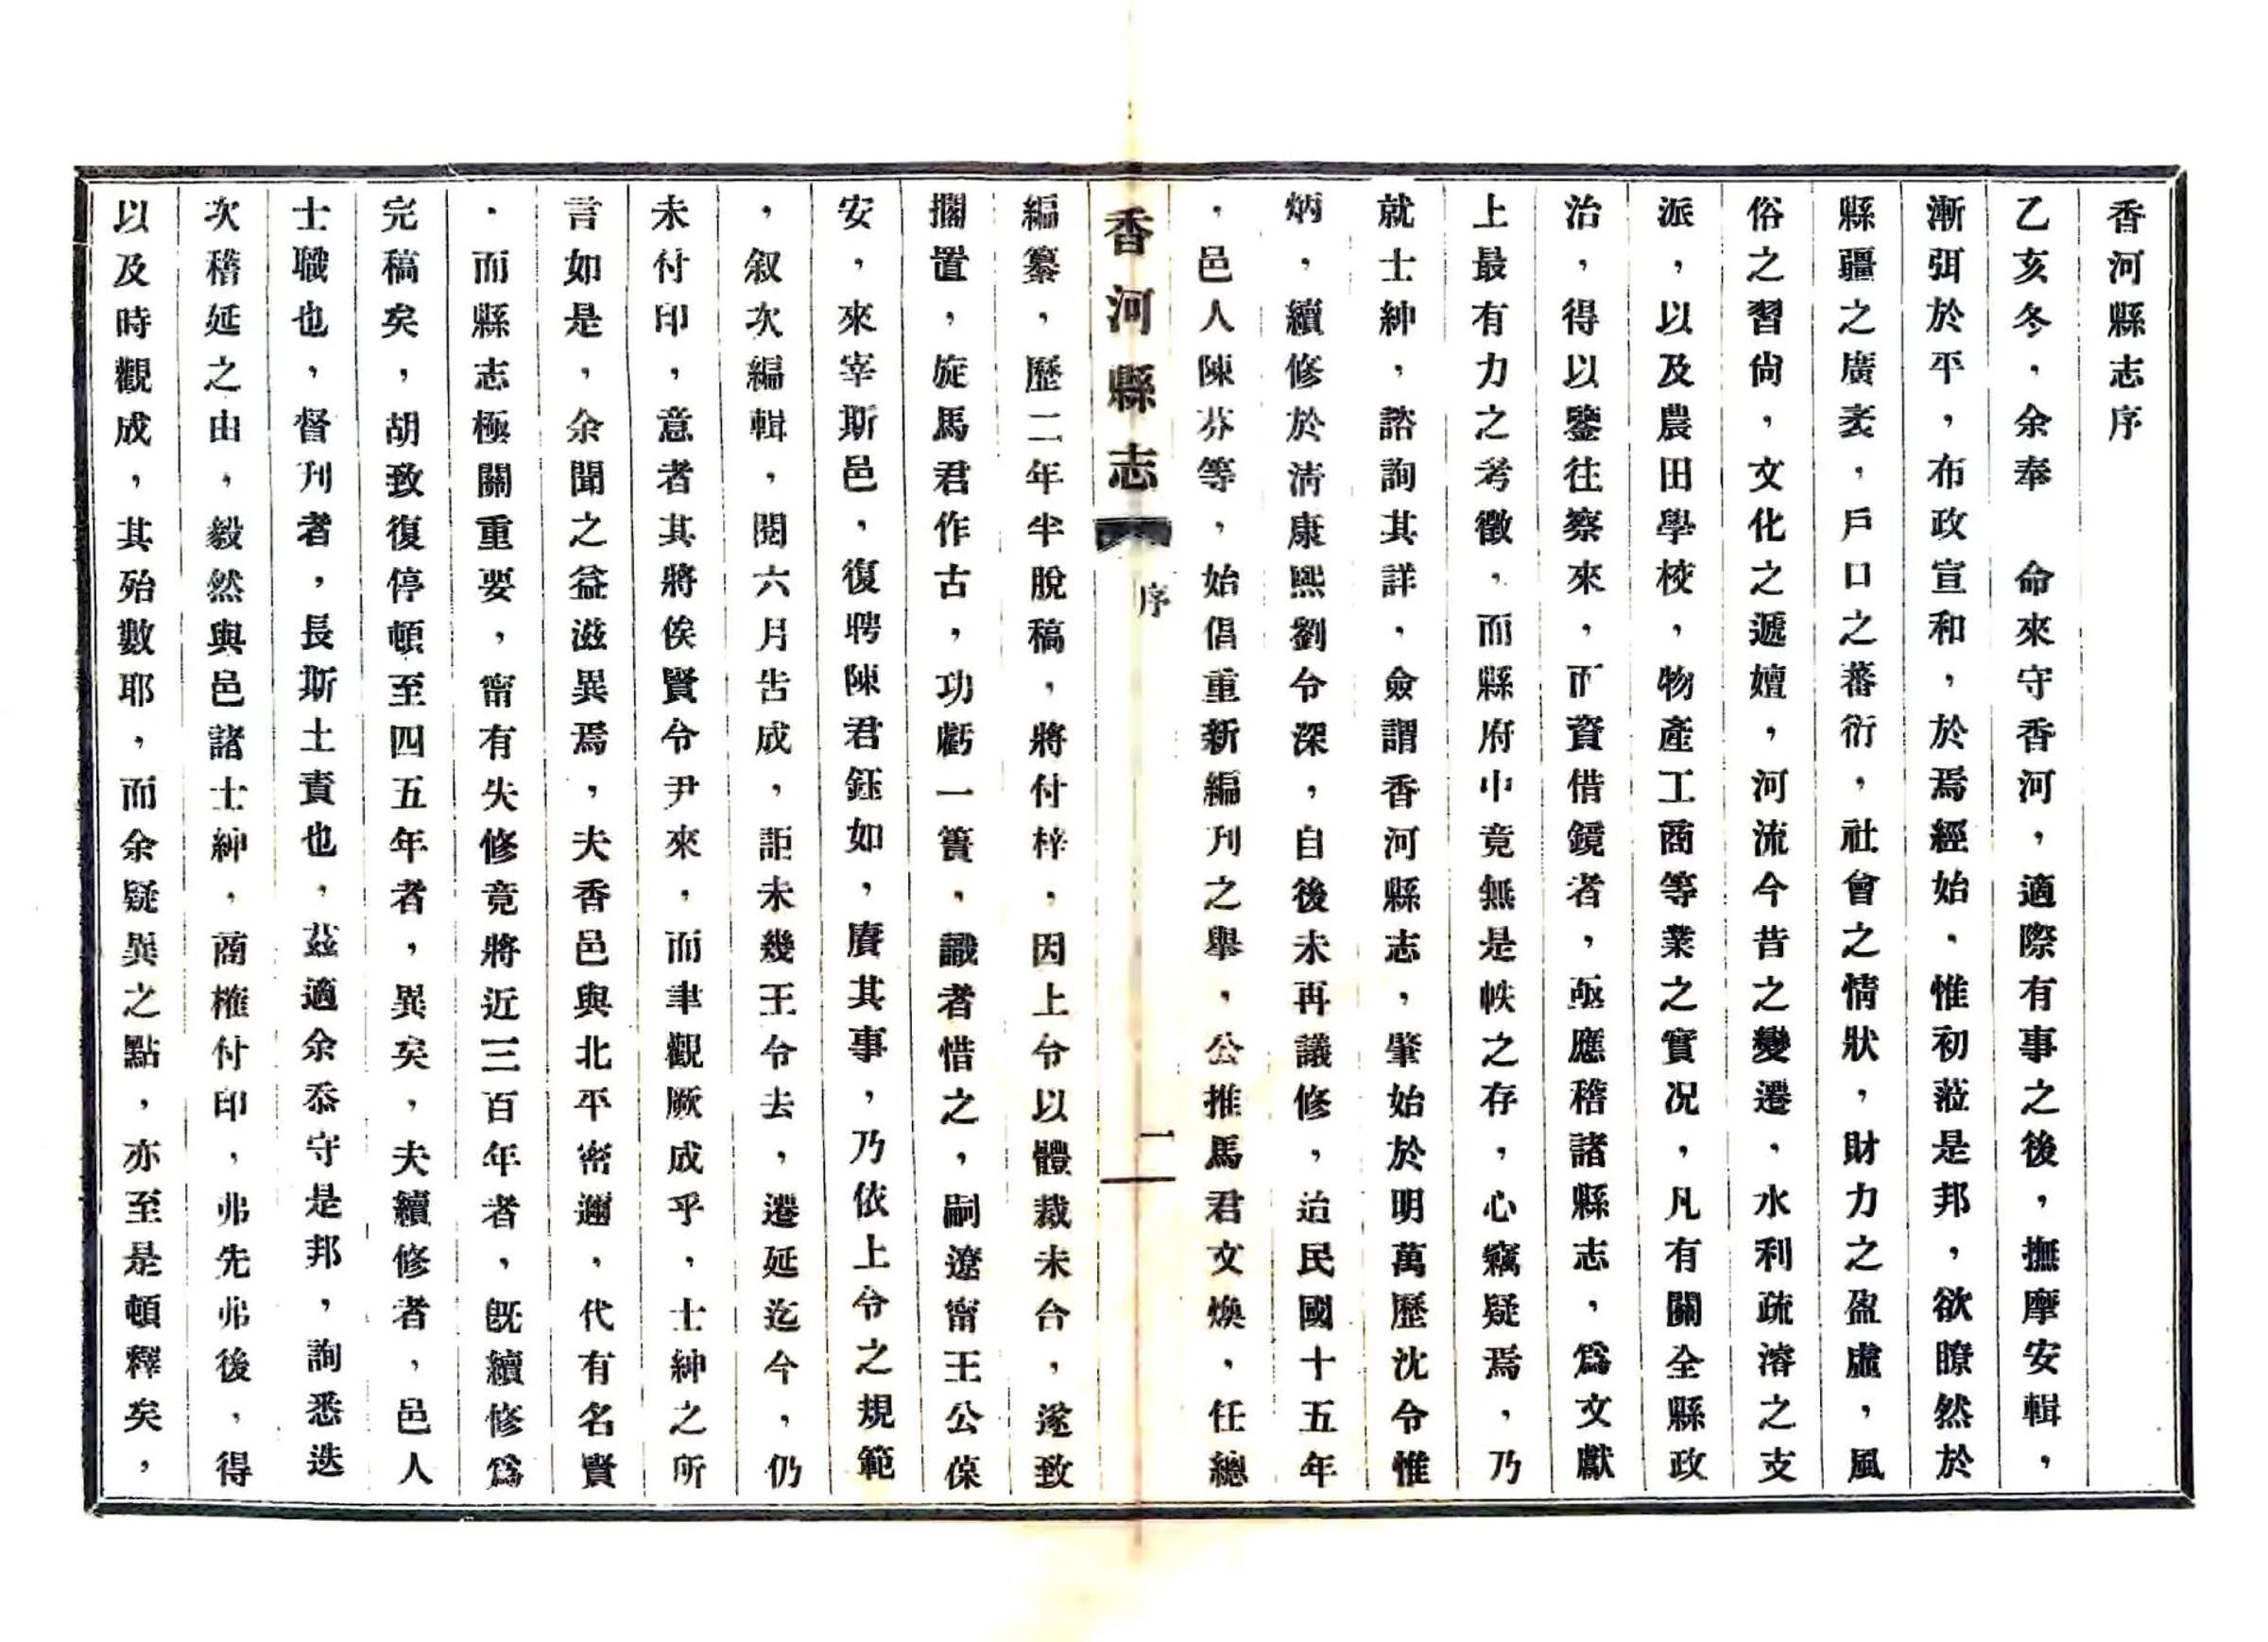 香河縣志序
乙亥冬，余奉　命來守香河，適際有事之後，撫摩安輯，
漸弭於平，布政宣和，於焉經始，惟初蒞是邦，欲瞭然於
縣疆之廣袤，戶口之蕃衍，社會之情狀，財力之盈虛，風
俗之習尙，文化之遞嬗，河流今昔之變遷，水利疏濬之支
派，以及農田學校，物產工商等業之實况，凡有關全縣政
治，得以鑒往察來，而資借鏡者，亟應稽諸縣志，爲文獻
上最有力之考徵，而縣府中竟無是帙之存，心竊疑焉，乃
就士紳，諮詢其詳，僉謂香河縣志，肇始於明萬歷沈令惟
炳，續修於淸康熙劉令深，自後未再議修，迨民國十五年
，邑人陳芬等，始倡重新編刋之舉，公推馬君文煥，任總
香河縣志　序　一
編纂，歷二年半脫稿，將付梓，因上令以體裁未合，遂致
擱置，旋馬君作古，功虧一簣，識者惜之，嗣遼甯王公葆
安，來宰斯邑，復聘陳君鈺如，賡其事，乃依上令之規範
，叙次編輯，閱六月吿成，詎未幾王令去，遷延迄今，仍
未付印，意者其將俟賢令尹來，而聿觀厥成乎，士紳之所
言如是，余聞之益滋異焉，夫香邑與北平密邇，代有名賢
，而縣志極關重要，甯有失修竟將近三百年者，旣續修爲
完稿矣，胡致復停頓至四五年者，異矣，夫續修者，邑人
士職也，督刋者，長斯土責也，茲適余忝守是邦，詢悉迭
次稽延之由，毅然與邑諸士紳，商榷付印，弗先弗後，得
以及時觀成，其殆數耶，而余疑異之點，亦至是頓釋矣，